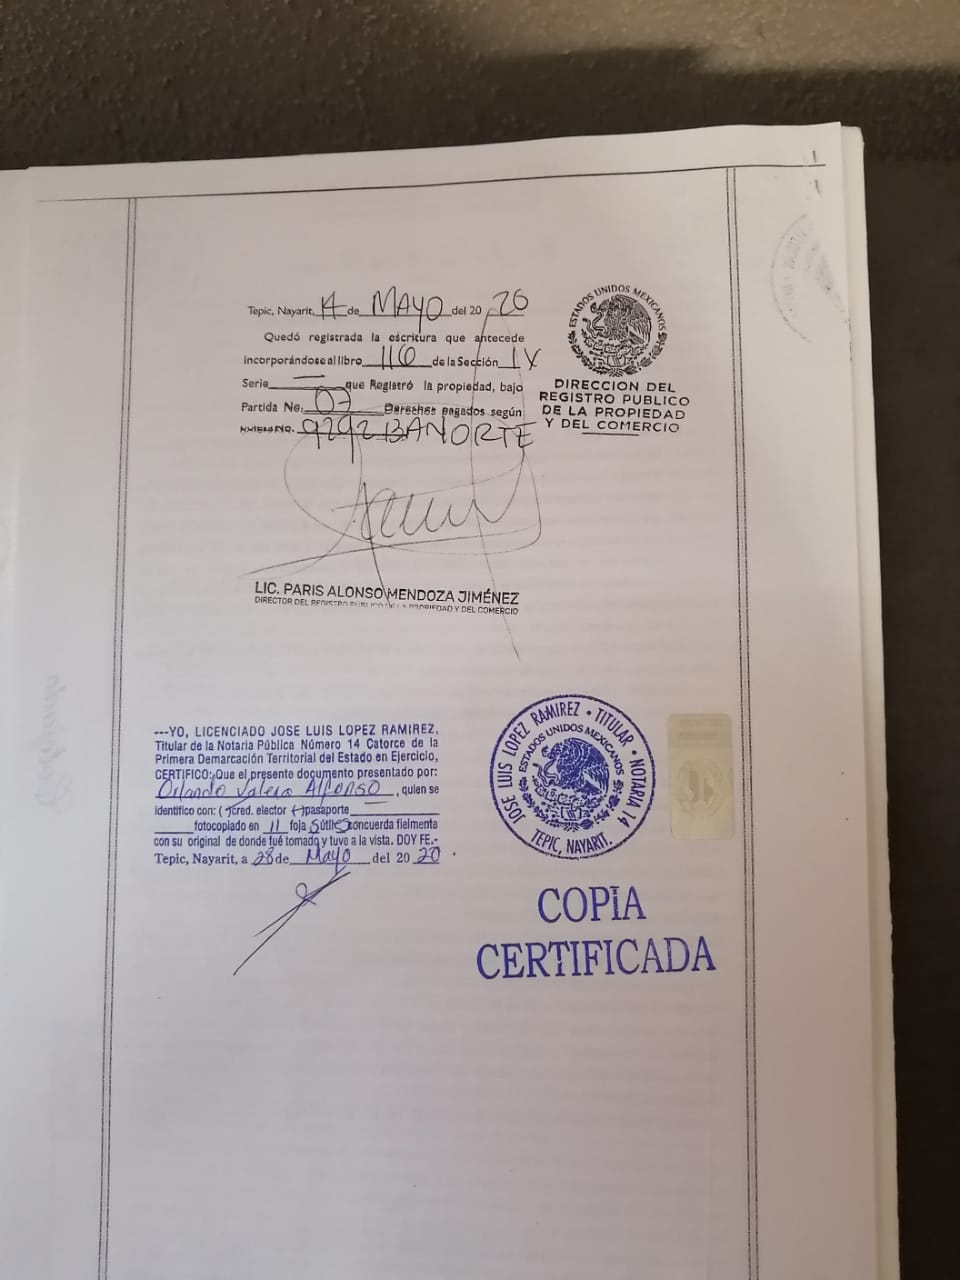 Tepic, Nayarit, 14 de MAYO del 20 20
Quedó registrada la escritura que antecede
incorporándose al libro 116 de la Sección IX
Serie — que Registró la propiedad, bajo
Partida No. 07 Derechos pagados según
No. 9292 BANORTE
ESTADOS UNIDOS MEXICANOS
DIRECCION DEL
REGISTRO PUBLICO
DE LA PROPIEDAD
Y DEL COMERCIO
LIC. PARIS ALONSO MENDOZA JIMÉNEZ
DIRECTOR DEL REGISTRO PUBLICO DE LA PROPIEDAD Y DEL COMERCIO
---YO, LICENCIADO JOSE LUIS LOPEZ RAMIREZ,
Titular de la Notaria Pública Número 14 Catorce de la
Primera Demarcación Territorial del Estado en Ejercicio,
CERTIFICO: Que el presente documento presentado por:
Orlando Valera Alfonso, quien se
identifico con: ( ) cred. elector ( ) pasaporte
fotocopiado en 11 foja s útiles concuerda fielmente
con su original de donde fué tomado y tuve a la vista. DOY FE.-
Tepic, Nayarit, a 28 de Mayo del 20 20
JOSE LUIS LOPEZ RAMIREZ • TITULAR • NOTARIA 14
ESTADOS UNIDOS MEXICANOS
TEPIC, NAYARIT.
COPIA
CERTIFICADA